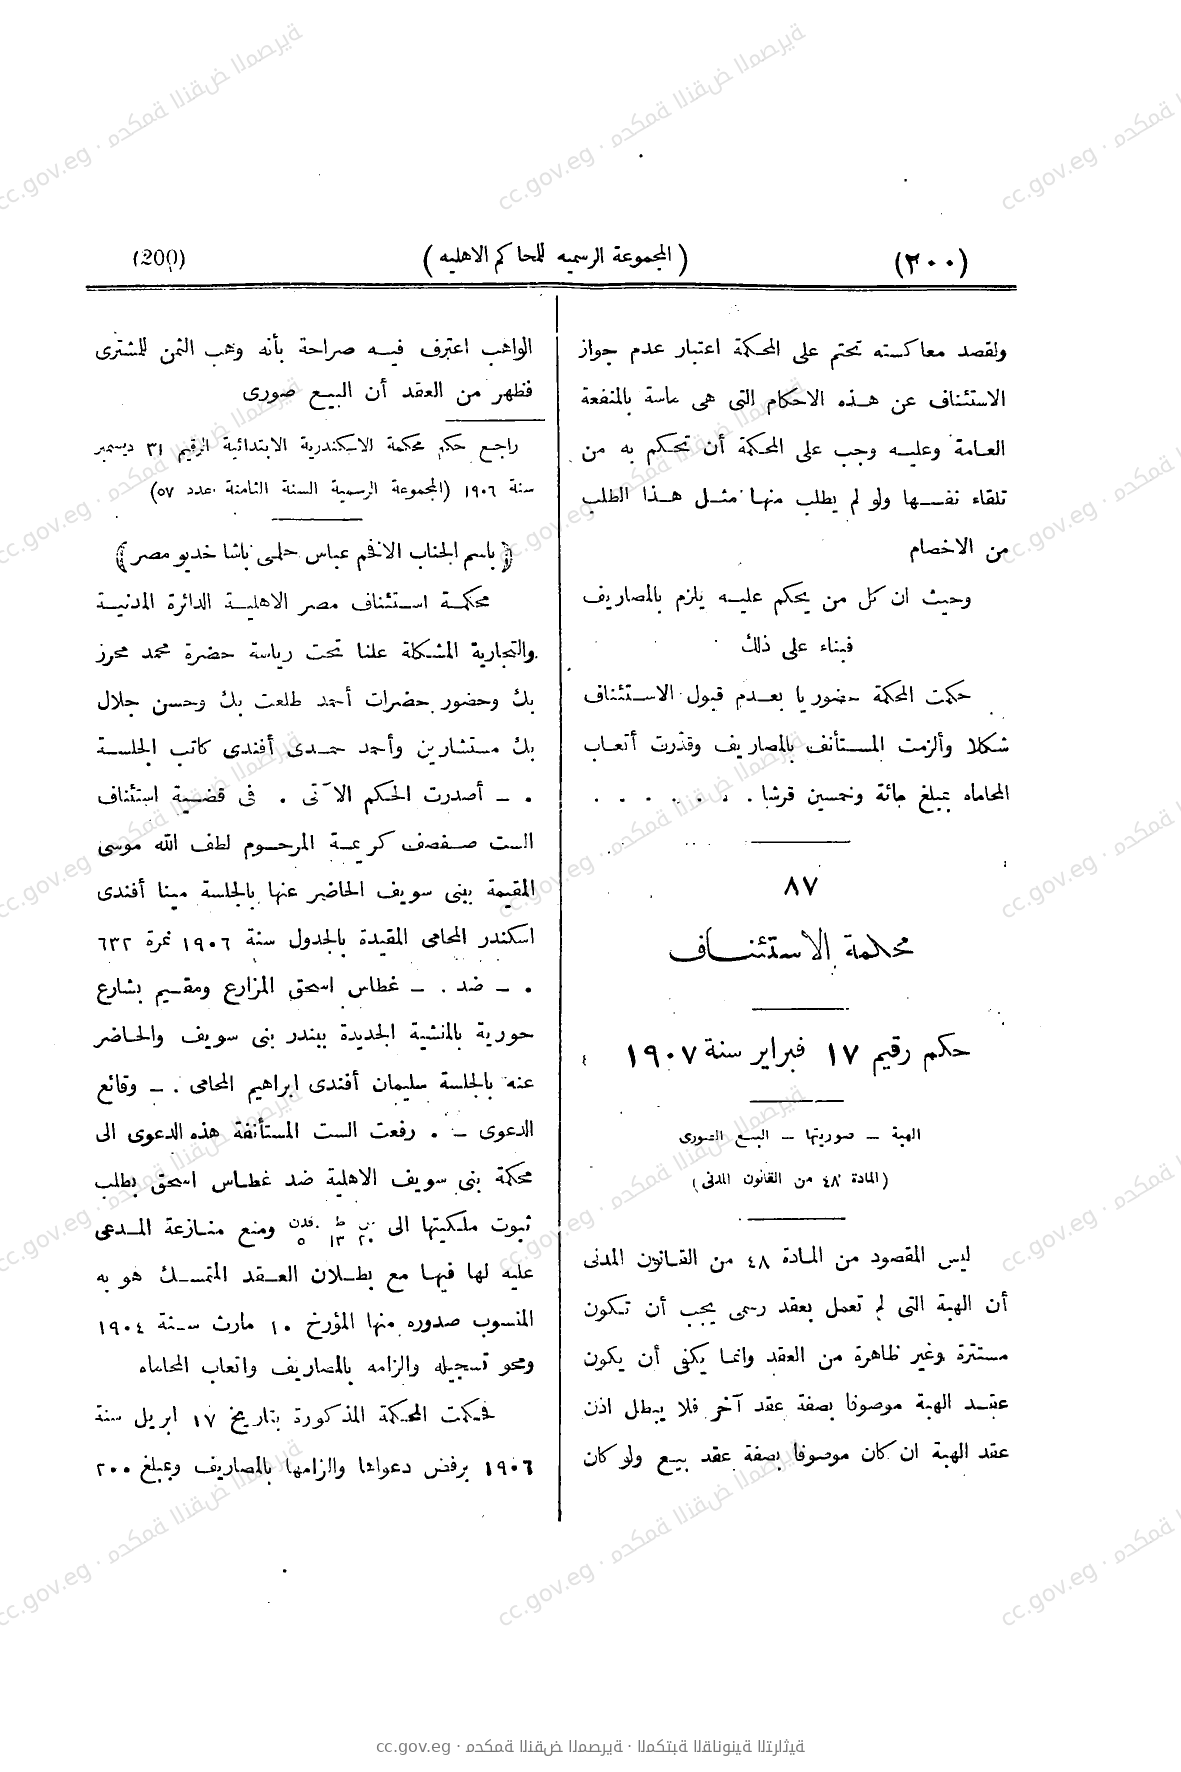 (٢٠٠)
(المجموعة الرسميه للمحاكم الاهليه)
(200)
ولقصد معاكسته تحتم على المحكمة اعتبار عدم جواز
الاستئناف عن هذه الاحكام التى هى ماسة بالمنفعة
العامة وعليه وجب على المحكمة أن تحكم به من
تلقاء نفسها ولو لم يطلب منها مثل هذا الطلب
من الاخصام
وحيث ان كل من يحكم عليه يلزم بالمصاريف
فبناء على ذلك
حكمت المحكمة حضوريا بعدم قبول الاستئناف
شكلا وألزمت المستأنف بالمصاريف وقدرت أتعاب
المحاماه بمبلغ مائة وخمسين قرشا . . . . . . .
٨٧
محكمة الاستئناف
حكم رقيم ١٧ فبراير سنة ١٩٠٧
الهبة – صوريتها – البيع الصورى
(المادة ٤٨ من القانون المدنى)
ليس المقصود من المادة ٤٨ من القانون المدنى
أن الهبة التى لم تعمل بعقد رسمى يجب أن تكون
مستترة وغير ظاهرة من العقد وانما يكفى أن يكون
عقد الهبة موصوفا بصفة عقد آخر فلا يبطل اذن
عقد الهبة ان كان موصوفا بصفة عقد بيع ولو كان
الواهب اعترف فيه صراحة بأنه وهب الثمن للمشترى
فظهر من العقد أن البيع صورى
راجع حكم محكمة الاسكندرية الابتدائية الرقيم ٣١ ديسمبر
سنة ١٩٠٦ (المجموعة الرسمية السنة الثامنة عدد ٥٧)
﴿باسم الجناب الافخم عباس حلمى باشا خديو مصر﴾
محكمة استئناف مصر الاهلية الدائرة المدنية
والتجارية المشكلة علنا تحت رياسة حضرة محمد محرز
بك وحضور حضرات أحمد طلعت بك وحسن جلال
بك مستشارين وأحمد حمدى أفندى كاتب الجلسة
. – أصدرت الحكم الآتى . فى قضية استئناف
الست صفصف كريمة المرحوم لطف الله موسى
المقيمة ببنى سويف الحاضر عنها بالجلسة مينا أفندى
اسكندر المحامى المقيدة بالجدول سنة ١٩٠٦ نمرة ٦٣٢
. – ضد . – غطاس اسحق المزارع ومقيم بشارع
حورية بالمنشية الجديدة ببندر بنى سويف والحاضر
عنه بالجلسة سليمان أفندى ابراهيم المحامى . – وقائع
الدعوى – . رفعت الست المستأنفة هذه الدعوى الى
محكمة بنى سويف الاهلية ضد غطاس اسحق بطلب
ثبوت ملكيتها الى س ٢٠ ط ١٣ فدن ٥ ومنع منازعة المدعى
عليه لها فيها مع بطلان العقد المتمسك هو به
المنسوب صدوره منها المؤرخ ١٠ مارث سنة ١٩٠٤
ومحو تسجيله والزامه بالمصاريف واتعاب المحاماه
فحكمت المحكمة المذكورة بتاريخ ١٧ ابريل سنة
١٩٠٦ برفض دعواها والزامها بالمصاريف وبمبلغ ٢٠٠
cc.gov.eg · محكمة النقض المصرية · المكتبة القانونية التراثية